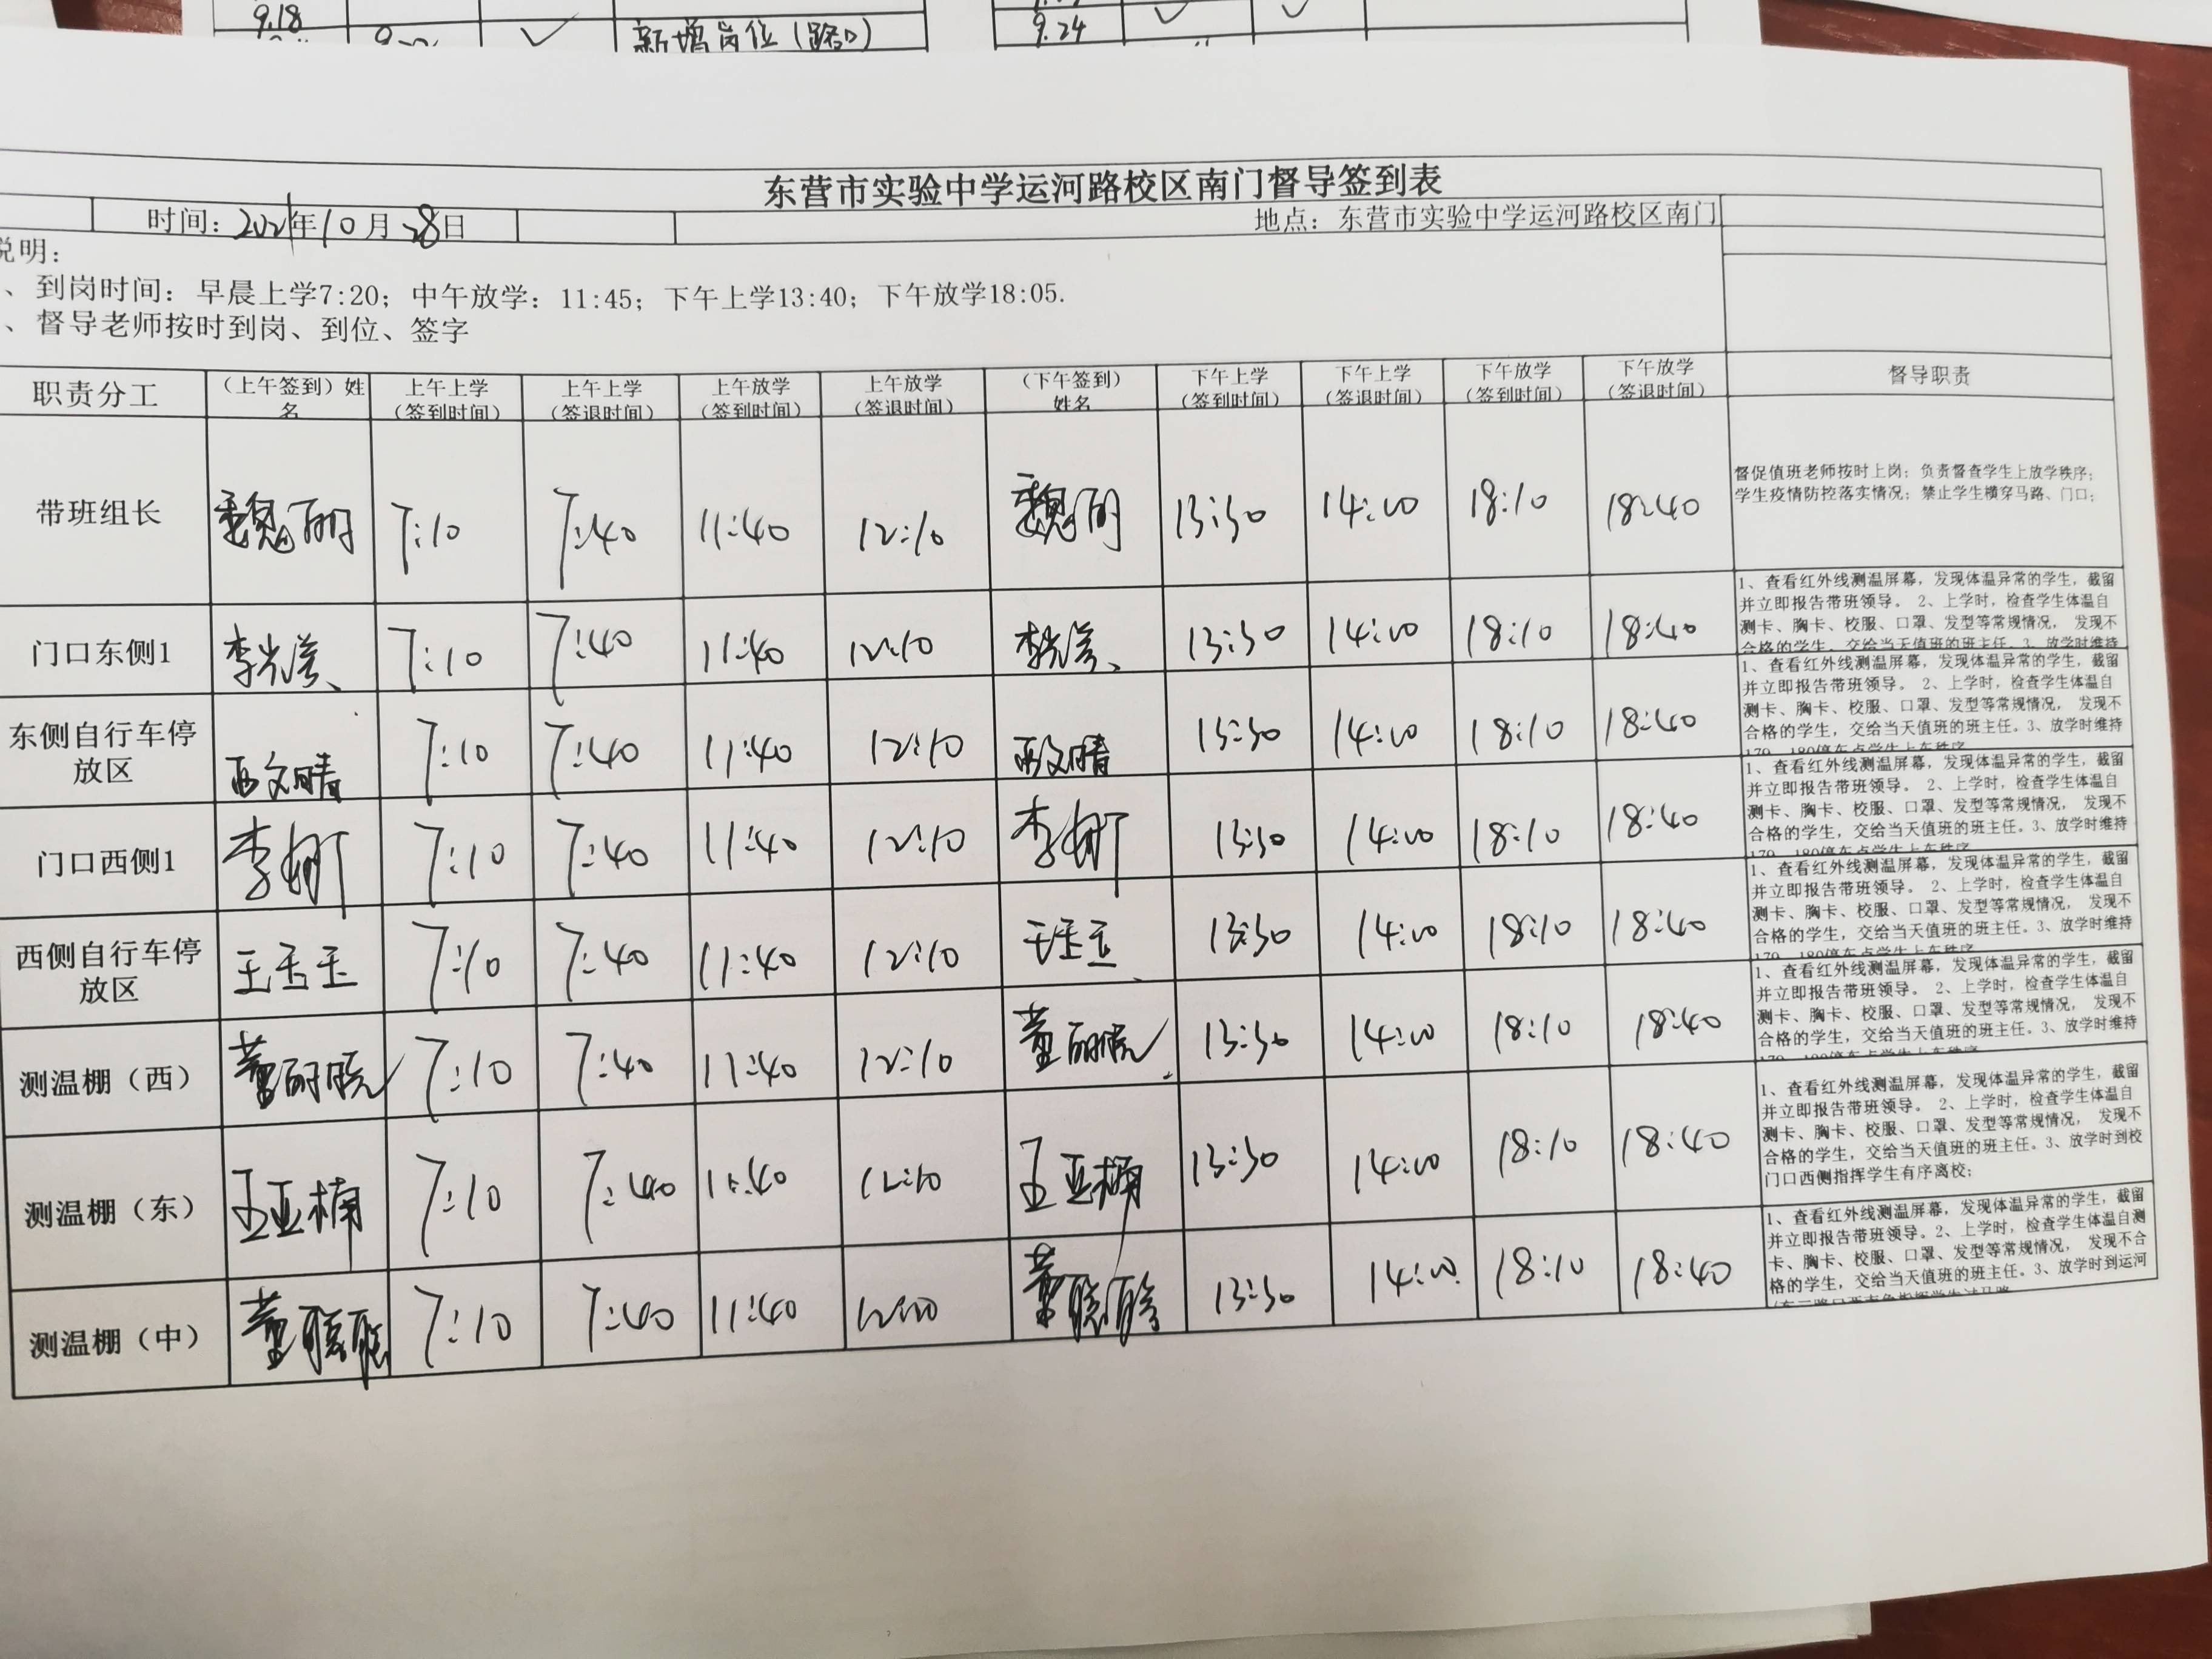 9.18
新增岗位（路口）
9.24
东营市实验中学运河路校区南门督导签到表
时间：2021年10月28日
地点：东营市实验中学运河路校区南门
说明：
、到岗时间：早晨上学7:20；中午放学：11:45；下午上学13:40；下午放学18:05.
、督导老师按时到岗、到位、签字
职责分工 （上午签到）姓名 上午上学（签到时间） 上午上学（签退时间） 上午放学（签到时间） 上午放学（签退时间） （下午签到）姓名 下午上学（签到时间） 下午上学（签退时间） 下午放学（签到时间） 下午放学（签退时间） 督导职责
带班组长 魏丽 7:10 7:40 11:40 12:10 魏丽 13:30 14:00 18:10 18:40
督促值班老师按时上岗；负责督查学生上放学秩序；
学生疫情防控落实情况；禁止学生横穿马路、门口；
门口东侧1 7:10 7:40 11:40 12:10 13:30 14:00 18:10 18:40
1、查看红外线测温屏幕，发现体温异常的学生，截留
并立即报告带班领导。 2、上学时，检查学生体温自
测卡、胸卡、校服、口罩、发型等常规情况， 发现不
合格的学生，交给当天值班的班主任。3、放学时维持
东侧自行车停放区 7:10 7:40 11:40 12:10 13:30 14:00 18:10 18:40
1、查看红外线测温屏幕，发现体温异常的学生，截留
并立即报告带班领导。 2、上学时，检查学生体温自
测卡、胸卡、校服、口罩、发型等常规情况， 发现不
合格的学生，交给当天值班的班主任。3、放学时维持
179、180停车点学生上车秩序
门口西侧1 李娜 7:10 7:40 11:40 12:10 李娜 13:30 14:00 18:10 18:40
1、查看红外线测温屏幕，发现体温异常的学生，截留
并立即报告带班领导。 2、上学时，检查学生体温自
测卡、胸卡、校服、口罩、发型等常规情况， 发现不
合格的学生，交给当天值班的班主任。3、放学时维持
179、180停车点学生上车秩序
西侧自行车停放区 王玉玉 7:10 7:40 11:40 12:10 王玉玉 13:30 14:00 18:10 18:40
1、查看红外线测温屏幕，发现体温异常的学生，截留
并立即报告带班领导。 2、上学时，检查学生体温自
测卡、胸卡、校服、口罩、发型等常规情况， 发现不
合格的学生，交给当天值班的班主任。3、放学时维持
179、180停车点学生上车秩序
测温棚（西） 董丽晓 7:10 7:40 11:40 12:10 董丽晓 13:30 14:00 18:10 18:40
1、查看红外线测温屏幕，发现体温异常的学生，截留
并立即报告带班领导。 2、上学时，检查学生体温自
测卡、胸卡、校服、口罩、发型等常规情况， 发现不
合格的学生，交给当天值班的班主任。3、放学时维持
179、180停车点学生上车秩序
测温棚（东） 王亚楠 7:10 7:40 11:40 12:10 王亚楠 13:30 14:00 18:10 18:40
1、查看红外线测温屏幕，发现体温异常的学生，截留
并立即报告带班领导。 2、上学时，检查学生体温自
测卡、胸卡、校服、口罩、发型等常规情况， 发现不
合格的学生，交给当天值班的班主任。3、放学时到校
门口西侧指挥学生有序离校；
测温棚（中） 7:10 7:40 11:40 12:10 13:30 14:00 18:10 18:40
1、查看红外线测温屏幕，发现体温异常的学生，截留
并立即报告带班领导。2、上学时，检查学生体温自测
卡、胸卡、校服、口罩、发型等常规情况， 发现不合
格的学生，交给当天值班的班主任。3、放学时到运河